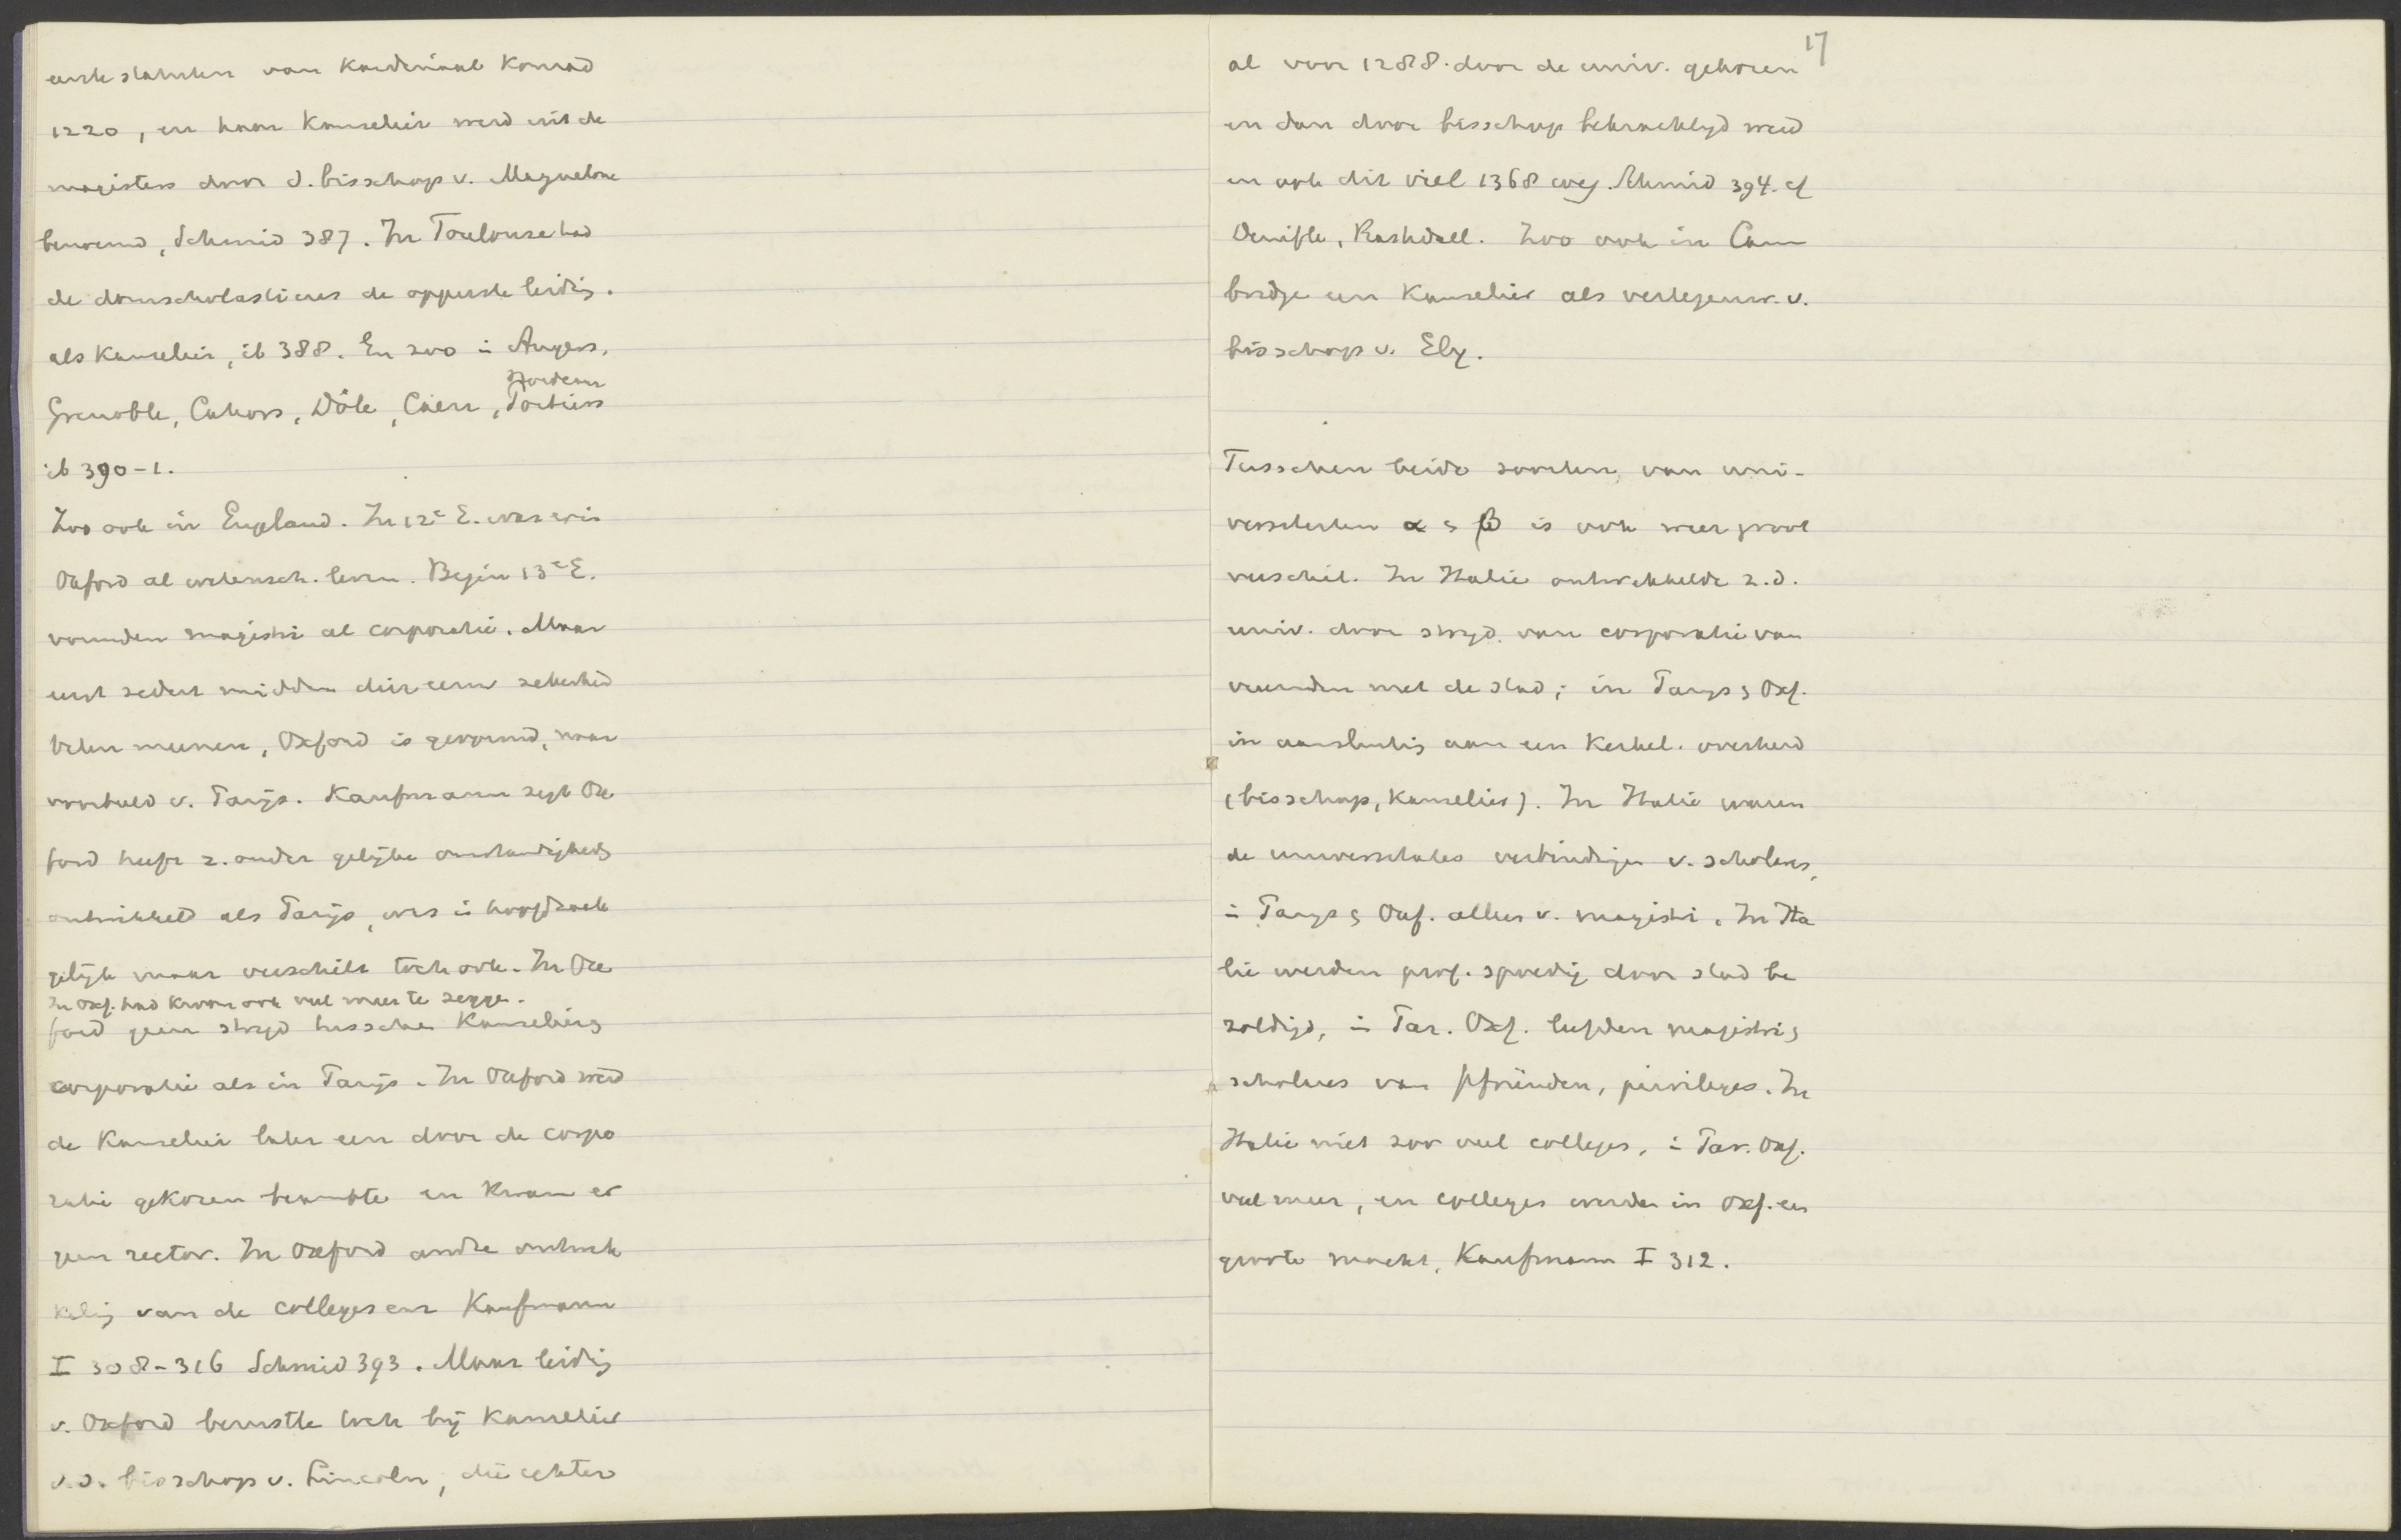 eerste statuten van Kardinaal Konrad
1220, en haar Kanselier werd uit de
magisters door d. bisschop v. Maguelone
benoemd, Schmid 387. In Toulouse had
de domscholasticus de opperste leidig.
als Kanselier, ib 388. En zoo i Angers,
Bordeaux
Grenoble, Cahors, Dôle, Caen, Poitiers
ib 390-1.
Zoo ook in England. In 12e E. was er in
Oxford al wetensch. leven. Begin 13e E.
vormden magistri al corporatie. Maar
eerst sedert midden dier eeuw zekerheid
Velen meenen, Oxford is gevormd, naar
voorbeeld v. Parijs. Kaufmann zegt Ox
ford heeft z. onder gelijke omstandigheds
ontwikkeld als Parijs, was i hoofdzaak
gelijk maar verschilt toch ook. In Ox
In Oxf. had Kroon ook veel meer te zegge.
ford geen strijd tussche Kanseliers
corporatie als in Parijs. In Oxford werd
de Kanselier later een door de corpo
ratie gekozen beambte en kwam er
geen rector. In Oxford andre ontwik
kelig van de colleges enz Kaufmann
I 308-316 Schmid 393. Maar leidig
v. Oxford berustte toch bij Kanselier
v.d. bisschop v. Lincoln, die echter
17
al voor 1288. door de univ. gekozen
en dan door bisschop bekrachtigd werd
en ook dit viel 1368 weg. Schmid 394. cf
Denifle, Rashdall. Zoo ook in Cam
bridge een Kanselier als vertegenw. v.
bisschop v. Ely.
Tusschen beide soorten van uni-
versiteiten α & β is ook weer groot
verschil. In Italie ontwikkelde z.d.
univ. door strijd van corporatie van
vreemden met de stad; in Parijs & Oxf.
in aansluitig aan een Kerkel. overheid
(bisschop, Kanselier). In Italie waren
de universitates verbindigen v. scholares,
i Parijs & Oxf. alleen v. magistri. In Ita
lie werden prof. spoedig door stad be
zoldigd, i Par. Oxf. leefden magistri &
scholares van pfründen, privileges. In
Italie niet zoo veel colleges, i Par. Oxf.
veel meer, en colleges werden in Oxf. een
groote macht, Kaufmann I 312.